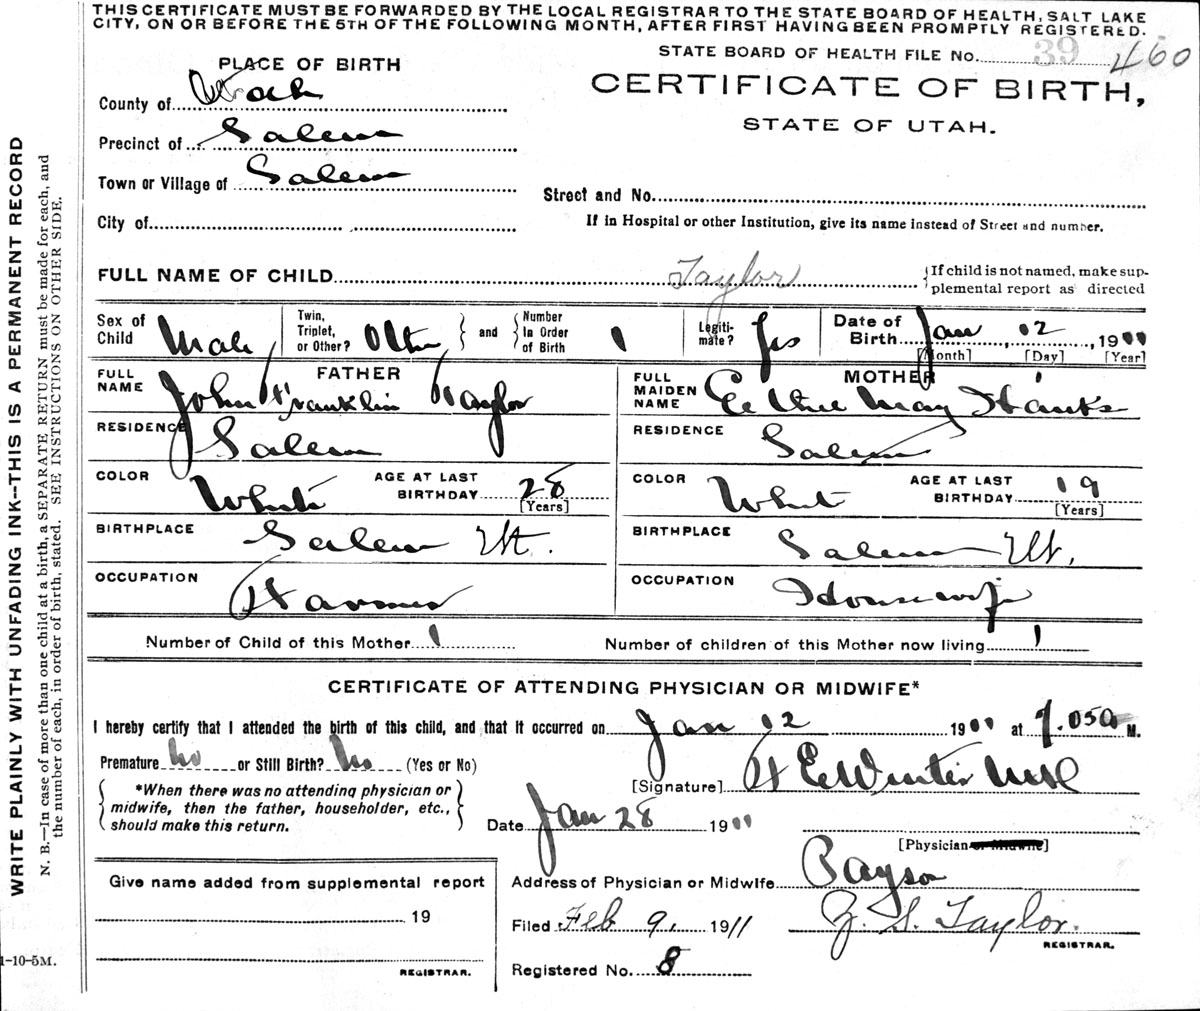 THIS CERTIFICATE MUST BE FORWARDED BY THE LOCAL REGISTRAR TO THE STATE BOARD OF HEALTH, SALT LAKE
CITY, ON OR BEFORE THE 5TH OF THE FOLLOWING MONTH, AFTER FIRST HAVING BEEN PROMPTLY REGISTERED.
STATE BOARD OF HEALTH FILE No. 39 460
PLACE OF BIRTH
CERTIFICATE OF BIRTH,
STATE OF UTAH.
County of Utah
Precinct of Salem
Town or Village of Salem
Street and No.
City of
If in Hospital or other Institution, give its name instead of Street and number.
FULL NAME OF CHILD Taylor
{If child is not named, make sup-
plemental report as directed
Sex of Child Male
Twin, Triplet, or Other? Other } and { Number In Order of Birth 1
Legiti-mate? Yes
Date of Birth Jan 12, 1911
[Month] [Day] [Year]
FATHER
FULL NAME John Franklin Taylor
MOTHER
FULL MAIDEN NAME May Hanks
RESIDENCE Salem
RESIDENCE Salem
COLOR White AGE AT LAST BIRTHDAY 28 [Years]
COLOR White AGE AT LAST BIRTHDAY 19 [Years]
BIRTHPLACE Salem Ut.
BIRTHPLACE Salem Ut.
OCCUPATION Farmer
OCCUPATION Housewife
Number of Child of this Mother 1
Number of children of this Mother now living 1
CERTIFICATE OF ATTENDING PHYSICIAN OR MIDWIFE*
I hereby certify that I attended the birth of this child, and that it occurred on Jan 12 1911 at M.
Premature No or Still Birth? No (Yes or No)
[Signature] Winter
*When there was no attending physician or
midwife, then the father, householder, etc.,
should make this return.
Date Jan 28 1911
[Physician or Midwife]
Address of Physician or Midwife Payson
Give name added from supplemental report
19
REGISTRAR.
Filed Feb 9, 1911
Taylor.
REGISTRAR.
Registered No. 8
1-10-5M.
WRITE PLAINLY WITH UNFADING INK--THIS IS A PERMANENT RECORD
N. B.—In case of more than one child at a birth, a SEPARATE RETURN must be made for each, and
the number of each, in order of birth, stated. SEE INSTRUCTIONS ON OTHER SIDE.